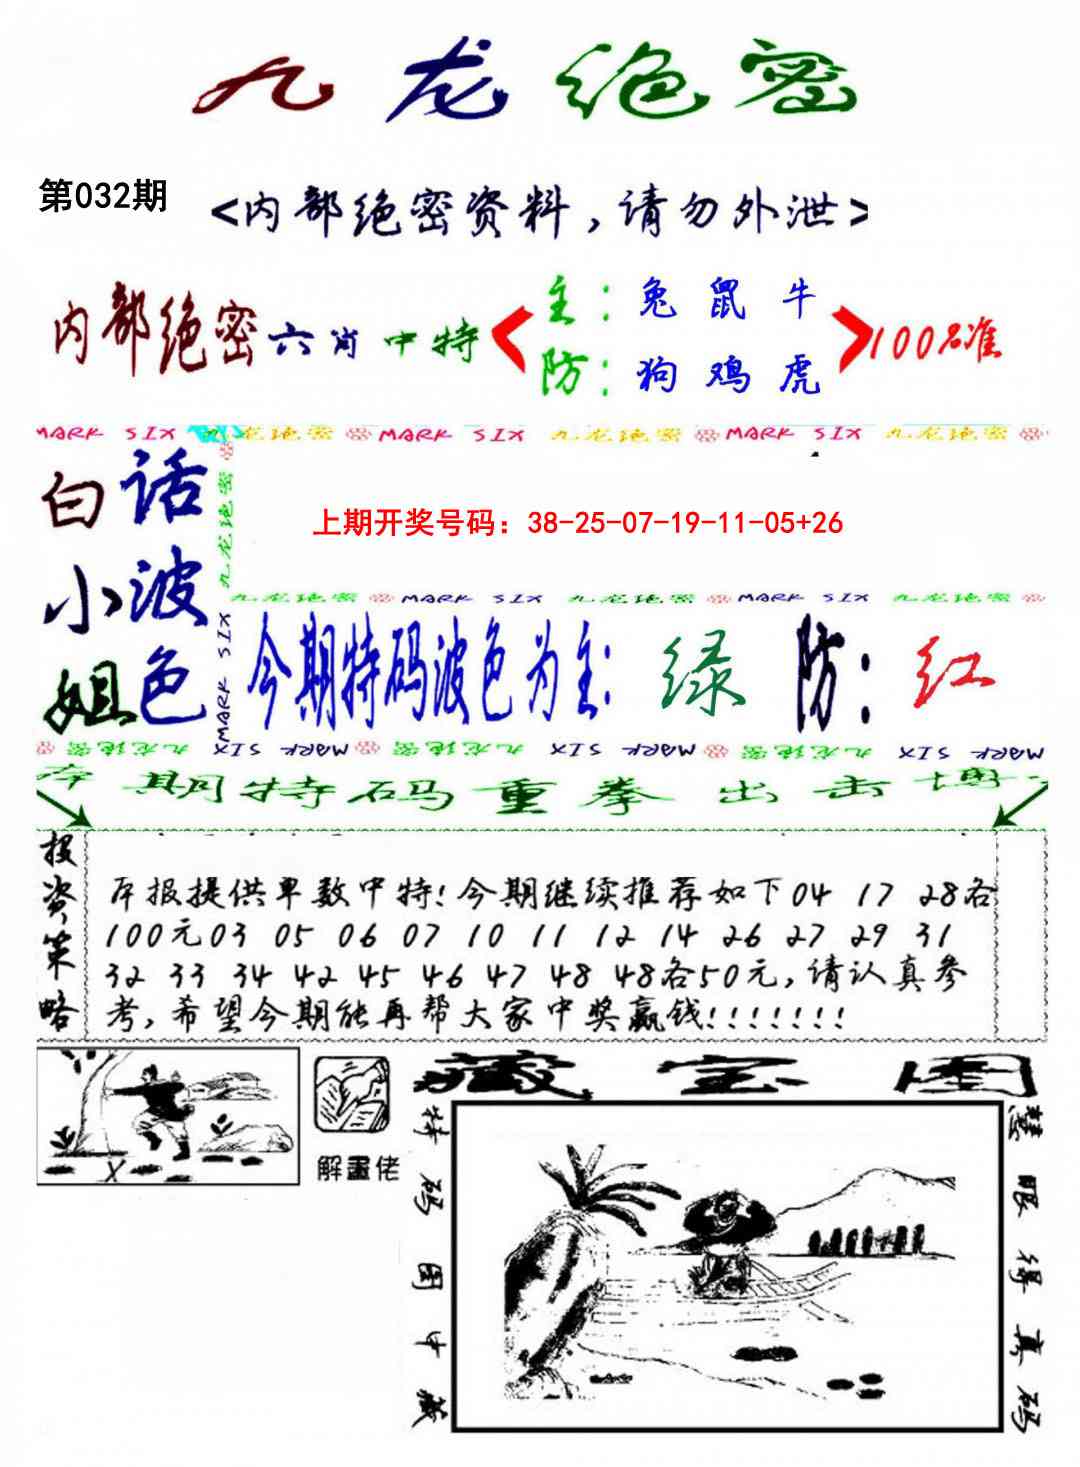 九龙绝密
第032期
<内部绝密资料,请勿外泄>
内部绝密六肖中特
主:兔 鼠 牛
防:狗 鸡 虎
100%准
MARK SIX 九龙绝密 MARK SIX 九龙绝密 MARK SIX 九龙绝密
白小姐
话波色
九龙绝密
MARK SIX
上期开奖号码:38-25-07-19-11-05+26
九龙绝密 MARK SIX 九龙绝密 MARK SIX 九龙绝密
今期特码波色为主:绿 防:红
九龙绝密 MARK SIX 九龙绝密 MARK SIX 九龙绝密 MARK SIX
本期特码重拳出击博
投资策略
本报提供单数中特!今期继续推荐如下04 17 28各
100元03 05 06 07 10 11 12 14 26 27 29 31
32 33 34 42 45 46 47 48 48各50元,请认真参
考,希望今期能再帮大家中奖赢钱!!!!!!!
解畫佬
藏宝图
特码图中藏
慧眼得真码